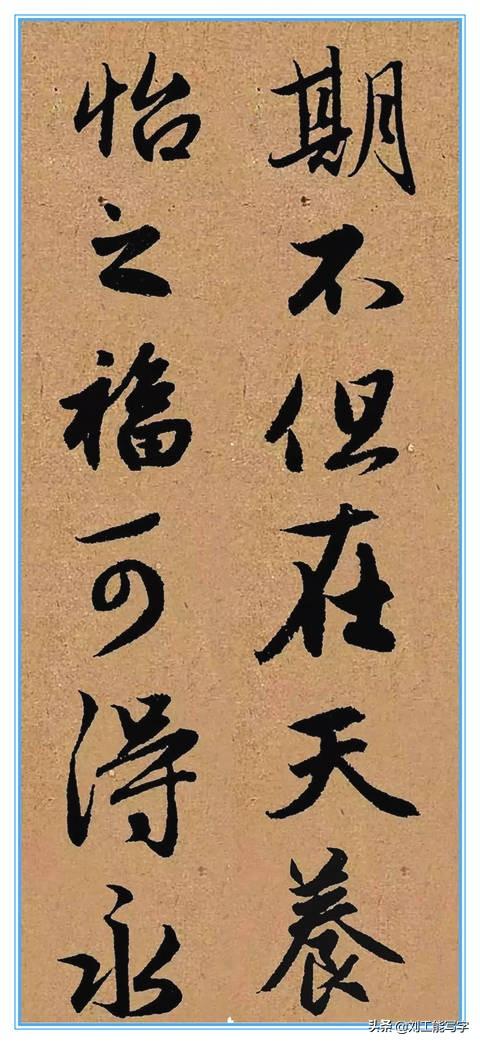 期不但在天養
怡之福可得永
头条 @刘工能写字